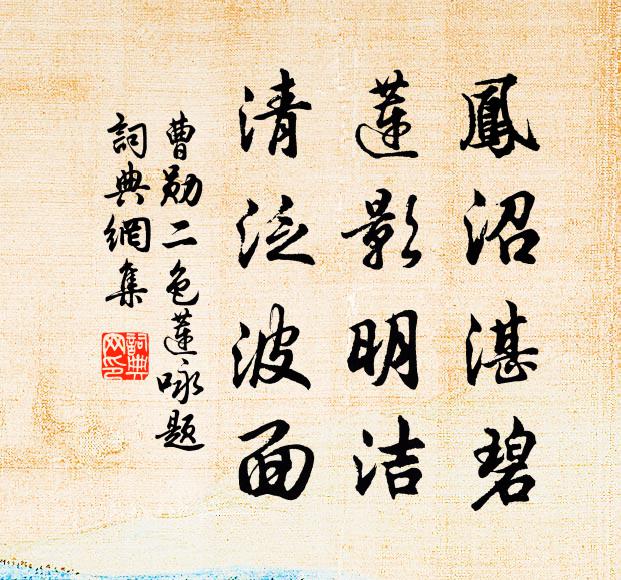 鳳沼湛碧
蓮影明洁
清泛波面
曹勛二色蓮咏題
詞典網集
詞典
网印